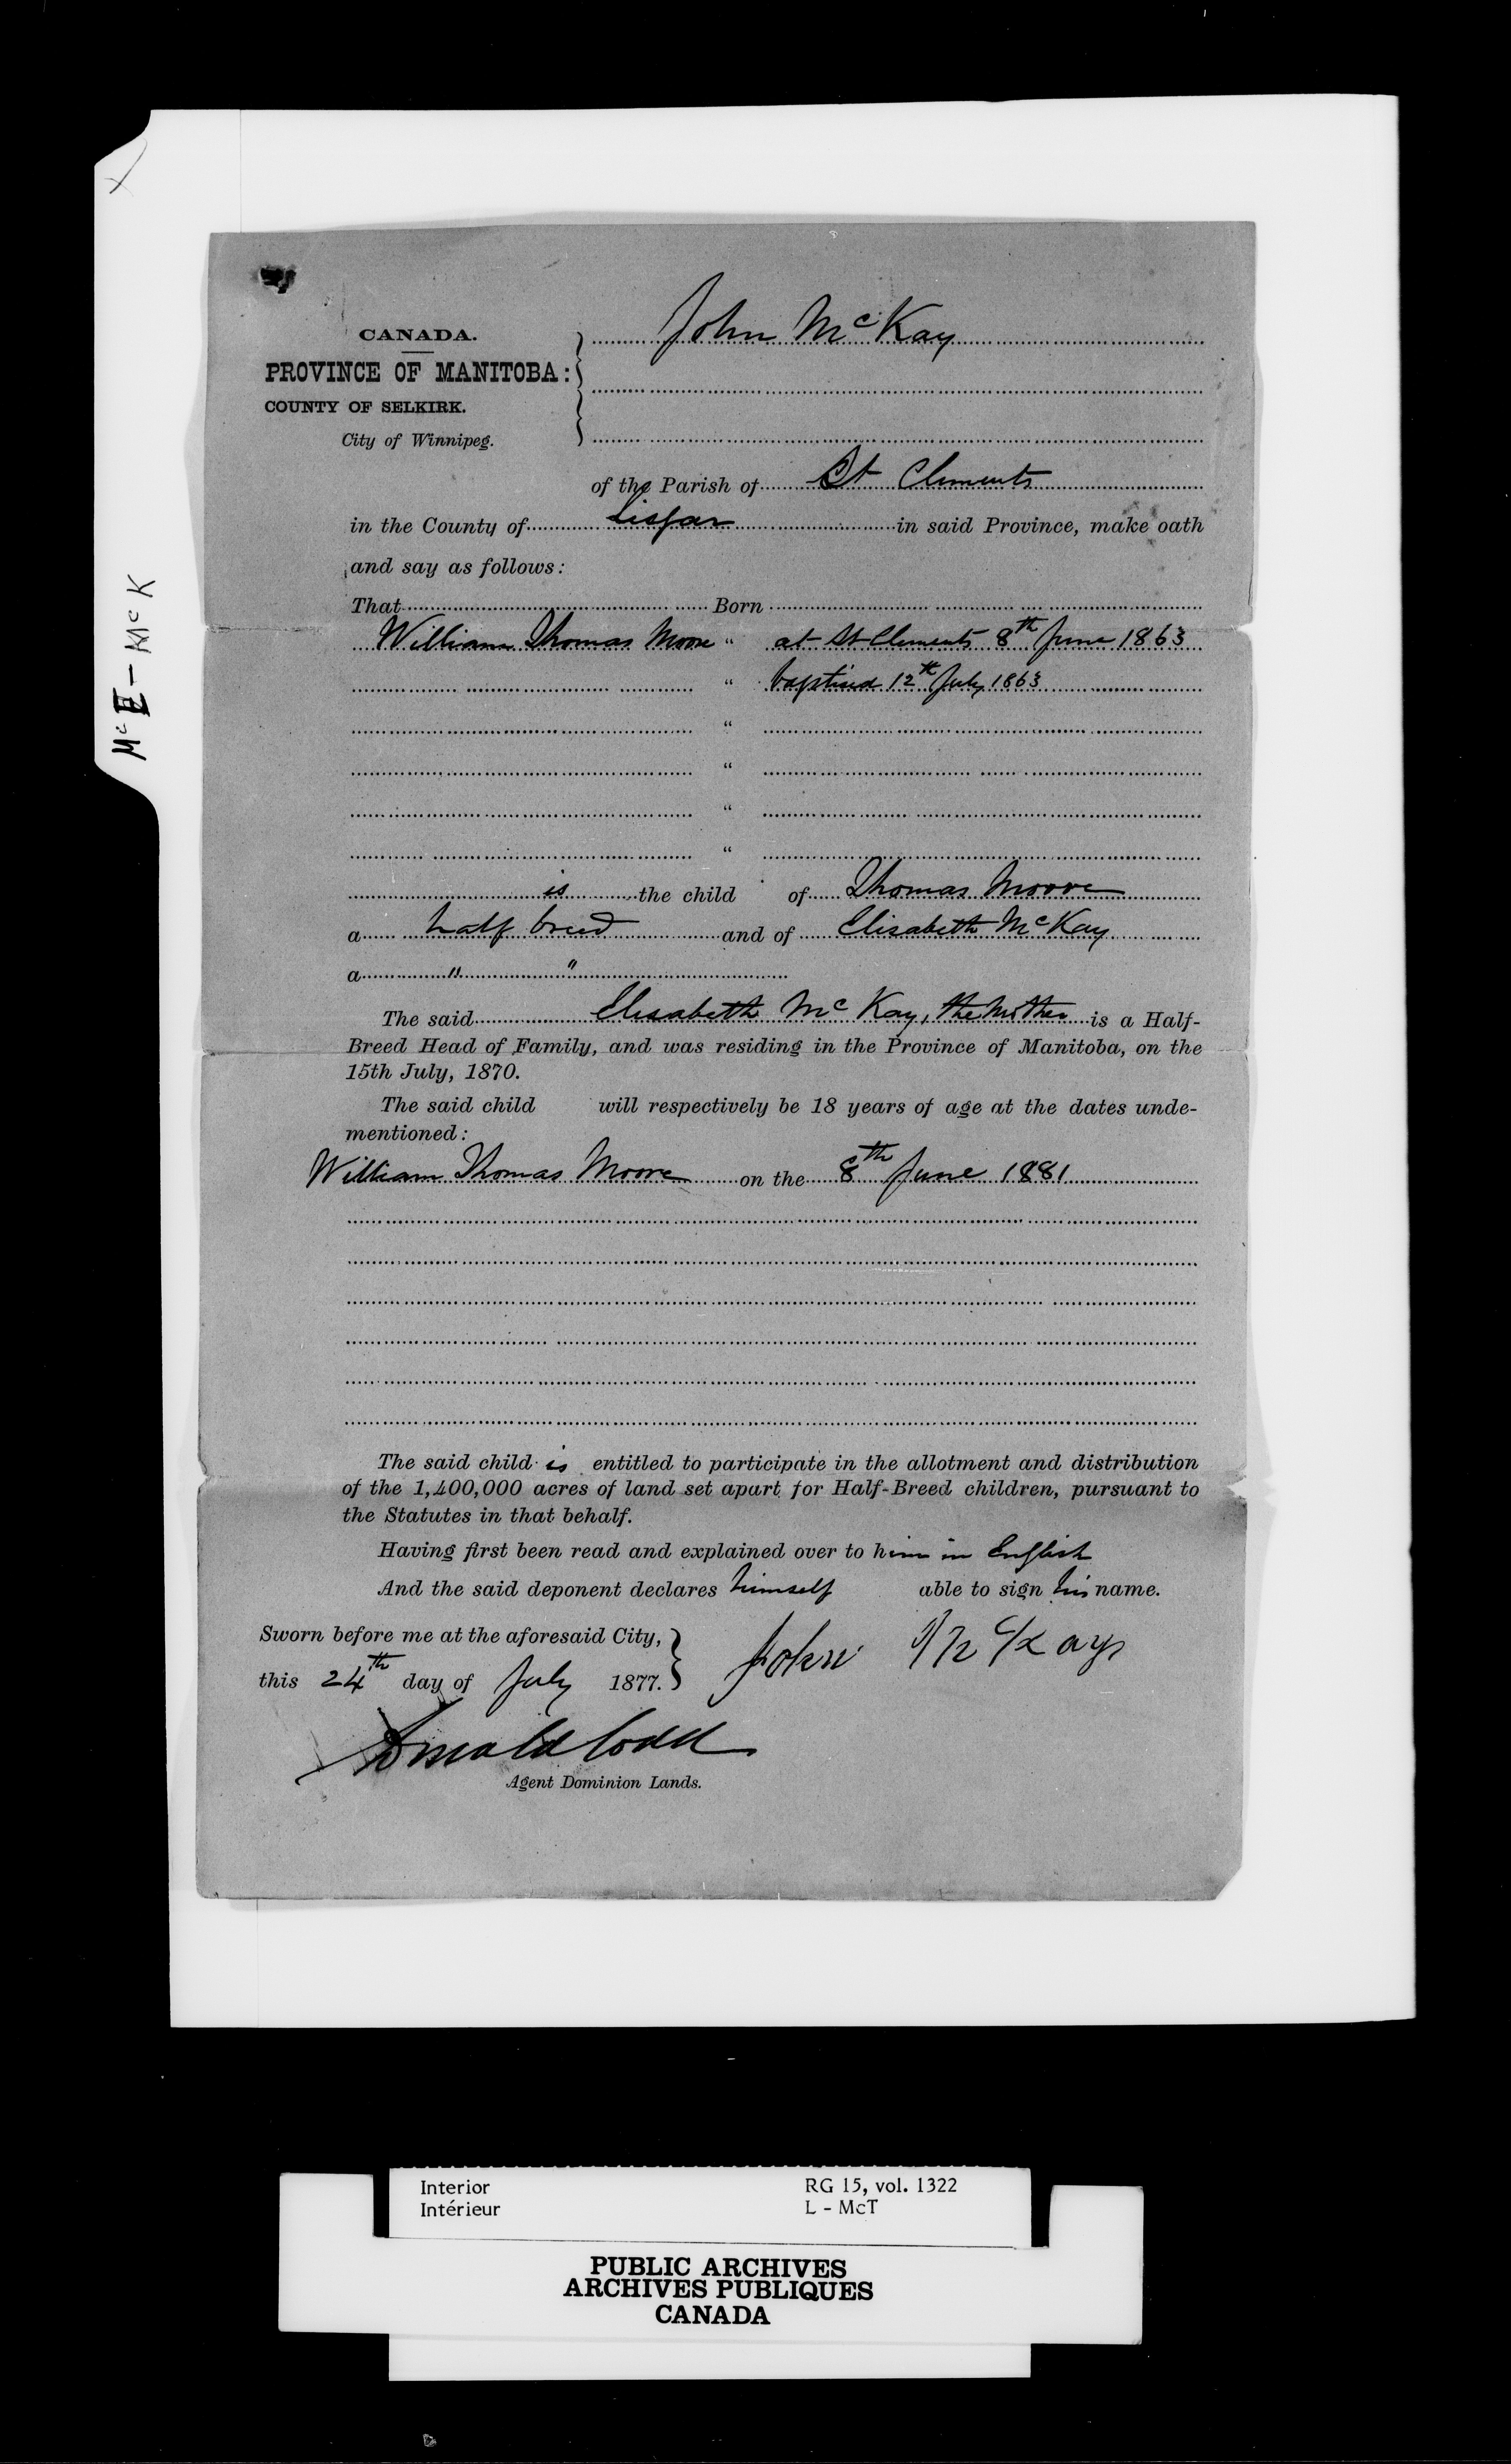 McE - McK
CANADA.
PROVINCE OF MANITOBA:
COUNTY OF SELKIRK.
City of Winnipeg.
John McKay
of the Parish of St Clements
in the County of Lisgar in said Province, make oath
and say as follows:
That Born
William Thomas Moore " at St Clements 8th June 1863
" baptised 12th July 1863
"
"
"
"
is the child of Thomas Moore
a half breed and of Elisabeth McKay
a " "
The said Elisabeth McKay, the Mother is a Half-
Breed Head of Family, and was residing in the Province of Manitoba, on the
15th July, 1870.
The said child will respectively be 18 years of age at the dates unde-
mentioned:
William Thomas Moore on the 8th June 1881
The said child is entitled to participate in the allotment and distribution
of the 1,400,000 acres of land set apart for Half-Breed children, pursuant to
the Statutes in that behalf.
Having first been read and explained over to him in English
And the said deponent declares himself able to sign his name.
Sworn before me at the aforesaid City,
this 24th day of July 1877.
John McKay
Donald Codd
Agent Dominion Lands.
Interior RG 15, vol. 1322
Intérieur L - McT
PUBLIC ARCHIVES
ARCHIVES PUBLIQUES
CANADA